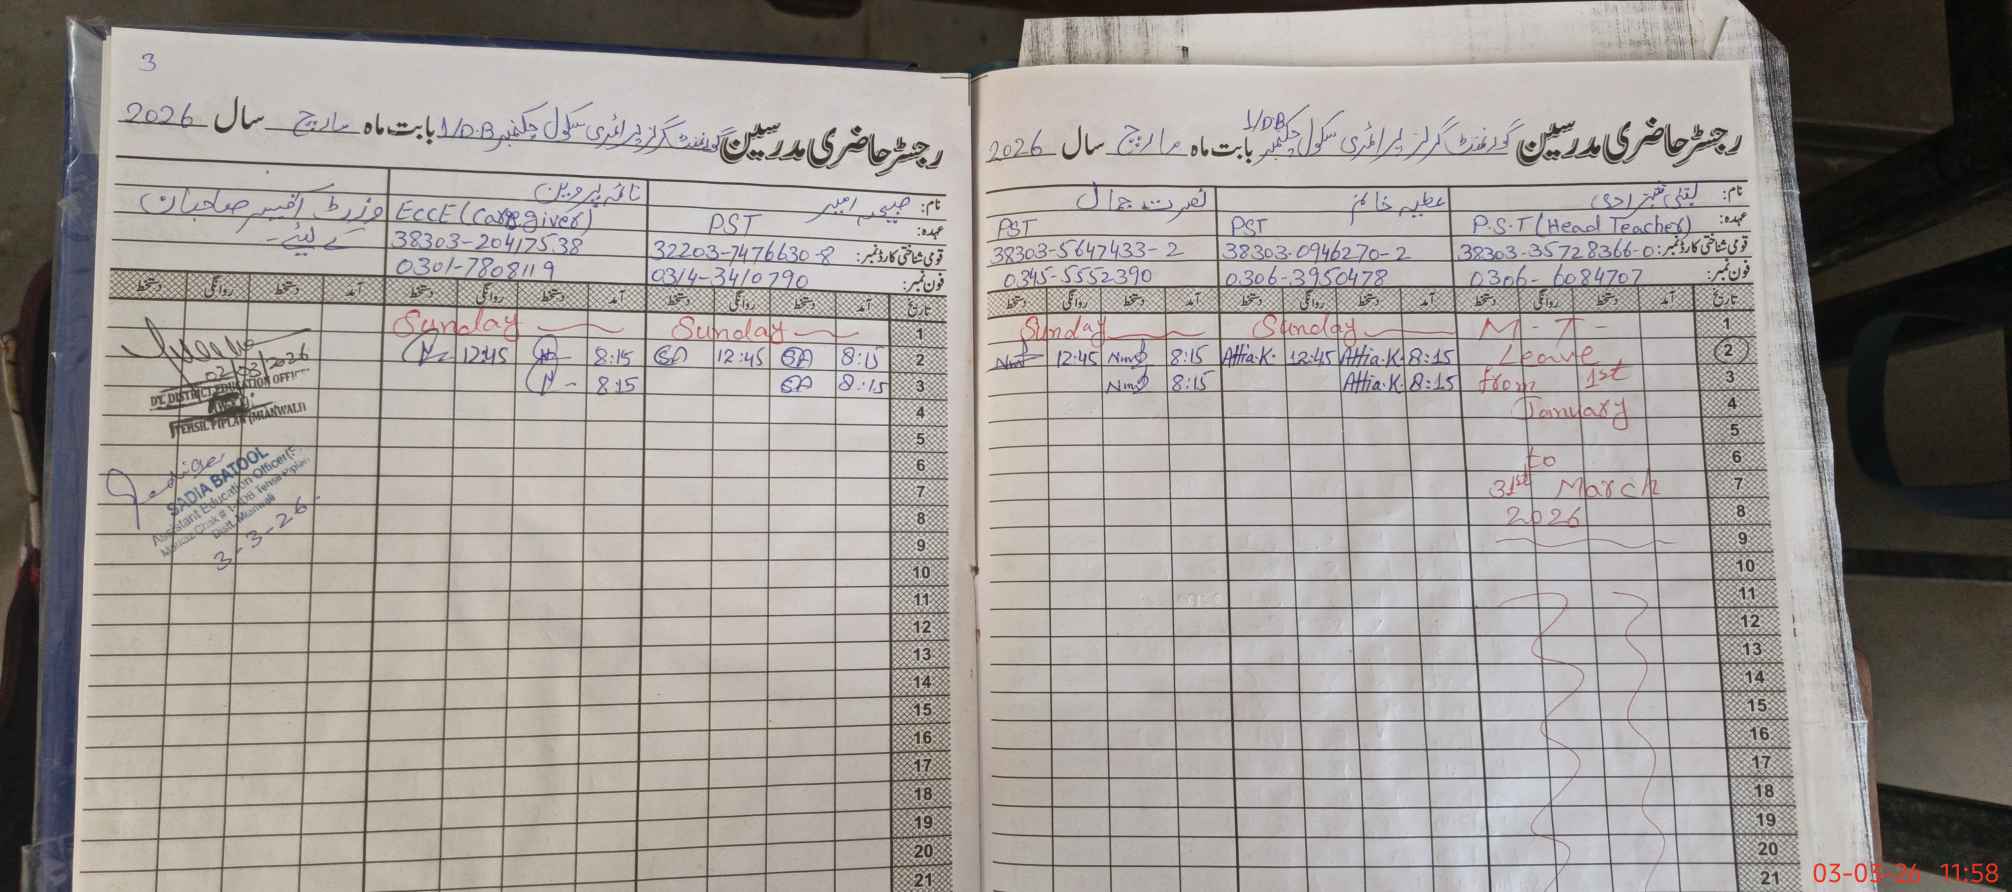 3
رجسٹر حاضری مدرسین گورنمنٹ گرلز پرائمری سکول چکنمبر 1/DB بابت ماہ مارچ سال 2026
نام: لبنیٰ شہزادی عطیہ خانم نصرت جمال
عہدہ: P.S.T (Head Teacher) PST PST
قومی شناختی کارڈ نمبر: 38303-35728366-0 38303-0946270-2 38303-5647433-2
فون نمبر: 0306-6084707 0306-3950478 0345-5552390
تاریخ آمد دستخط روانگی دستخط آمد دستخط روانگی دستخط آمد دستخط روانگی دستخط
1 M-T- Sunday Sunday
2 Leave 8:15 Attia.K. 12:45 Attia.K. 8:15 12:45
3 from 1st 8:15 Attia.K. 8:15
4 January
5
6 to
7 31st March
8 2026
9
10
11
12
13
14
15
16
17
18
19
20
21
رجسٹر حاضری مدرسین گورنمنٹ گرلز پرائمری سکول چکنمبر 1/D.B بابت ماہ مارچ سال 2026
نام: نائلہ پروین وزٹ آفیسر صاحبان
عہدہ: PST ECCE (Caregiver) کے لیئے۔
قومی شناختی کارڈ نمبر: 32203-7476630-8 38303-20417538
فون نمبر: 0314-3410790 0301-7808119
تاریخ آمد دستخط روانگی دستخط آمد دستخط روانگی دستخط آمد دستخط روانگی دستخط
1 Sunday Sunday
2 8:15 SA 12:45 SA 8:15 12:45
3 8:15 SA 8:15
4
5
6
7
8
9
10
11
12
13
14
15
16
17
18
19
20
21
02/03/2026
DY. DISTRICT EDUCATION OFFICER
TEHSIL PIPLAN (MIANWALI)
Sadia
SADIA BATOOL
Assistant Education Officer
Markaz Chak # 1-DB Tehsil Piplan
Distt. Mianwali
3-3-26.
03-03-26 11:58